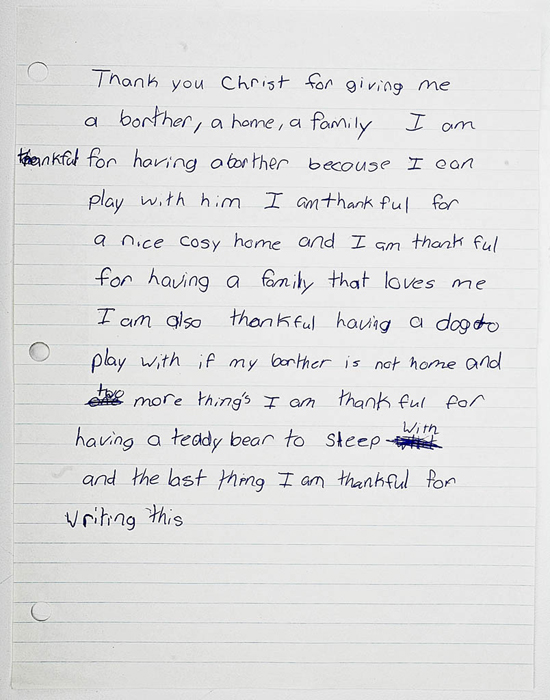 Thank you Christ for giving me
a borther, a home, a family I am
thankful for having aborther becouse I can
play with him I amthankful for
a nice cosy home and I am thankful
for having a family that loves me
I am also thankful having a dog to
play with if my borther is not home and
two more thing's I am thankful for
having a teddy bear to sleep with
and the last thing I am thankful for
writing this